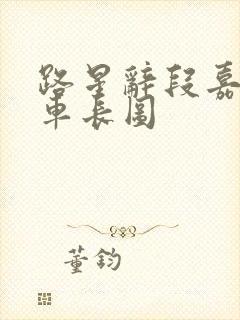 路星辭段嘉
車長圖
董鈞